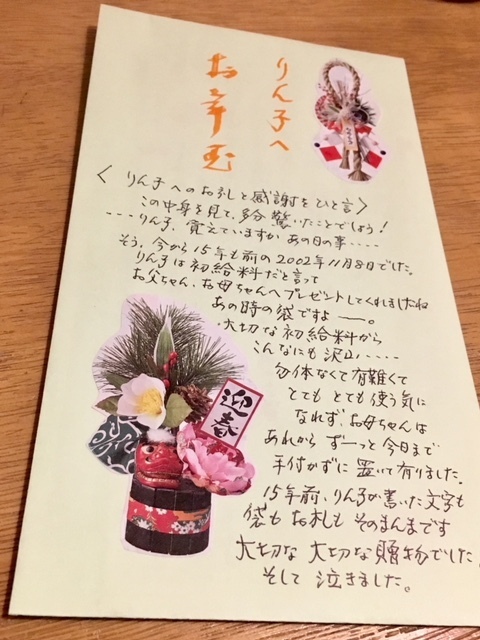 りん子へ
お年玉
〈 りん子へのお礼と感謝をひと言 〉
この中身を見て、多分驚いたことでしょう!
----りん子、覚えていますか あの日の事‥‥
そう、今から15年も前の2002年11月8日でした。
りん子は初給料だと言って
お父ちゃん、お母ちゃんへプレゼントしてくれましたね
あの時の袋ですよ ー。
大切な初給料から
こんなにも沢山‥‥
勿体なくて有難くて
とてもとても使う気に
なれず、お母ちゃんは
あれから ずーっと今日まで
手付かずに置いて有りました。
15年前、りん子が書いた文字も
袋もお札も そのまんまです
大切な 大切な贈物でした。
そして 泣きました。
迎春